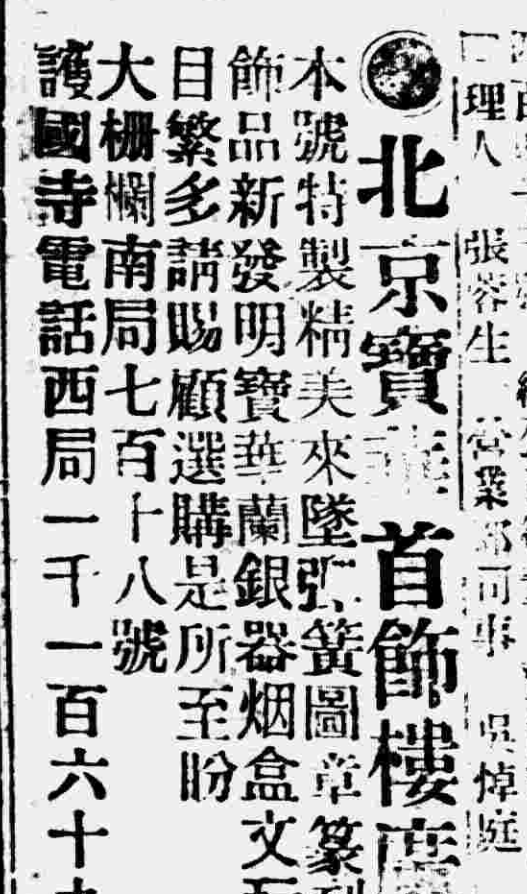 理人　張蓉生　營業部司事　吳悼庭
北京寶華首飾樓廣
本號特製精美來墜彈簧圖章篆刻
飾品新發明寶華蘭銀器烟盒文
目繁多請賜顧選購是所至盼
大栅欄南局七百十八號
護國寺電話西局一千一百六十